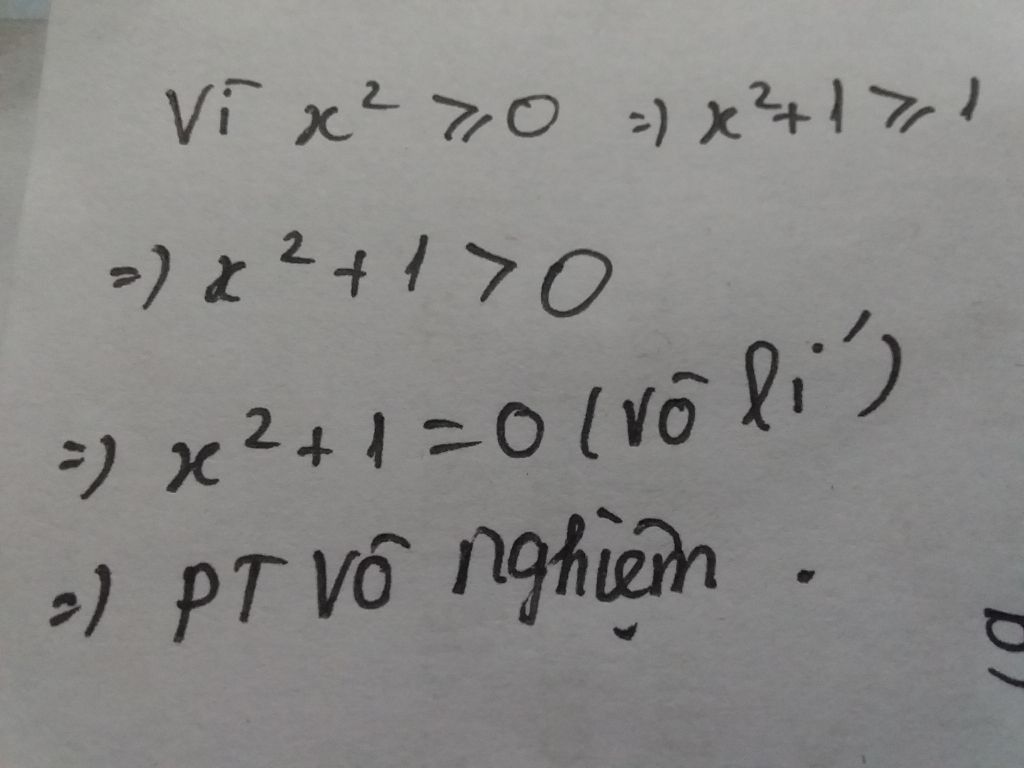 Vì x² ⩾ 0 => x² + 1 ⩾ 1
=> x² + 1 > 0
=> x² + 1 = 0 (vô lí)
=> PT vô nghiệm.